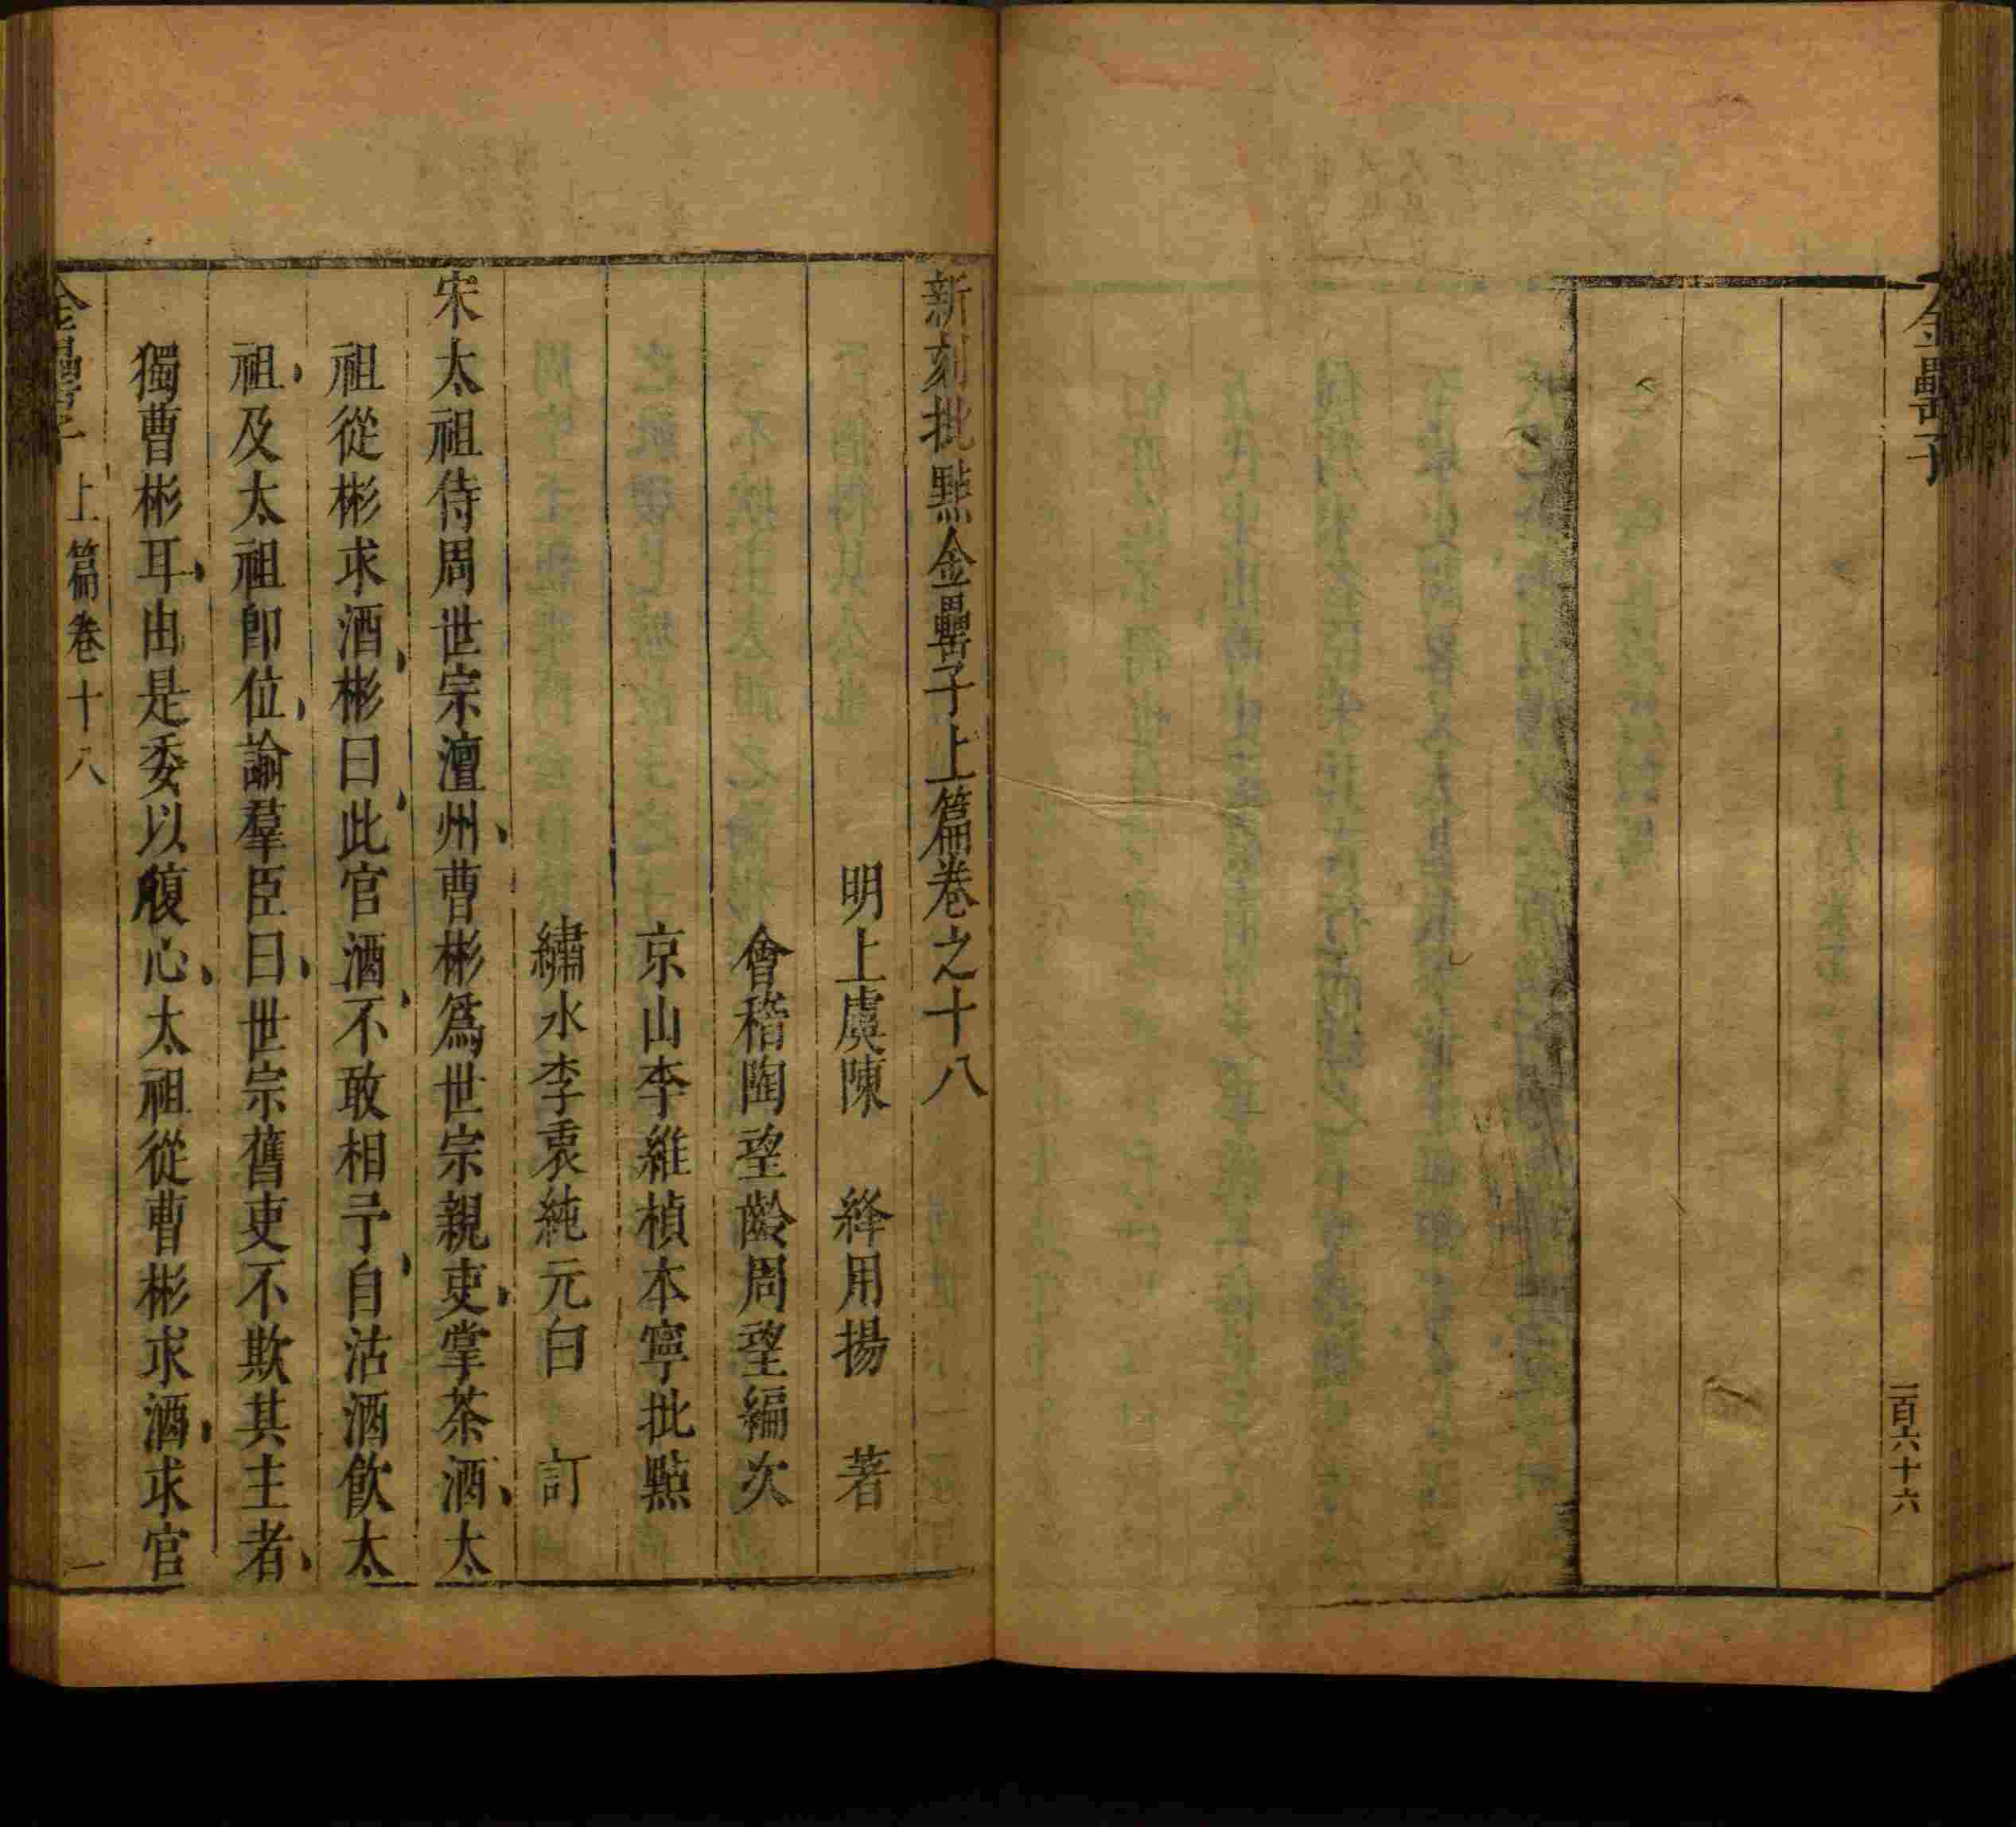 金罍子
一百六十六
新刻批點金罍子上篇卷之十八
明上虞陳　絳用揚　著
會稽陶望齡周望編次
京山李維楨本寧批點
繡水李衷純元白　訂
宋太祖侍周世宗澶州曹彬爲世宗親吏掌茶酒太
祖從彬求酒彬曰此官酒不敢相予自沽酒飮太
祖及太祖卽位諭羣臣曰世宗舊吏不欺其主者
獨曹彬耳由是委以腹心太祖從曹彬求酒求官
金罍子　上篇卷十八　一